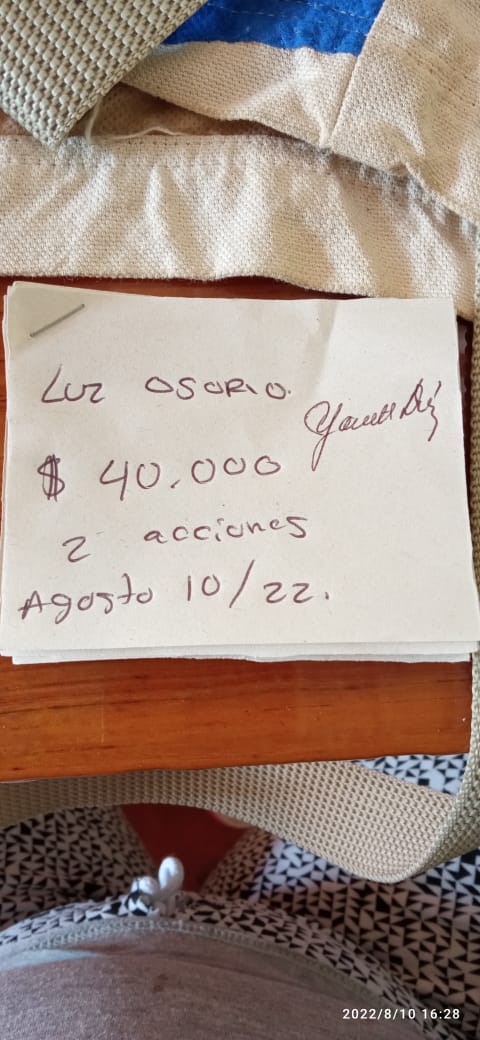 Luz OSORIO.
$ 40.000
2 acciones
Agosto 10/22.
2022/8/10 16:28